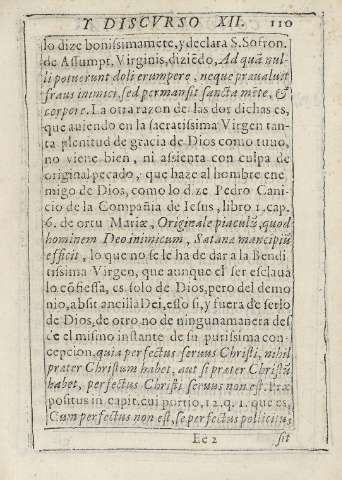 Y DISCVRSO XII. 110
lo dize bonissimamẽte, y declara S. Sofron.
de Assumpt. Virginis, diziẽdo, Ad quã nul-
li potuerunt doli erumpere, neque praualuit
fraus inimici, sed permansit sancta mẽte, &
corpore. La otra razon de las dos dichas es,
que auiendo en la sacratissima Virgen tan-
ta plenitud de gracia de Dios como tuuo,
no viene bien, ni assienta con culpa de
original pecado, que haze al hombre ene
migo de Dios, como lo dize Pedro Cani-
cio de la Compañia de Iesus, libro 1. cap.
6. de ortu Mariæ, Originale piaculũ, quod
hominem Deo inimicum, Satanæ mancipiũ
efficit, lo que no se le ha de dar a la Bendi
tissima Virgen, que aunque el ser esclaua
lo cõfiessa, es solo de Dios, pero del demo
nio, absit ancilla Dei, esso si, y fuera de serlo
de Dios, de otro no de ninguna manera des
de el mismo instante de su purissima con-
cepcion, quia perfectus seruus Christi, nihil
præter Christum habet, aut si præter Christũ
habet, perfectus Christi seruus non est. Præ
positus in capit. cui portio, 12. q. 1. que es,
Cum perfectus non est, se perfectus policitus,
Ee 2 sit